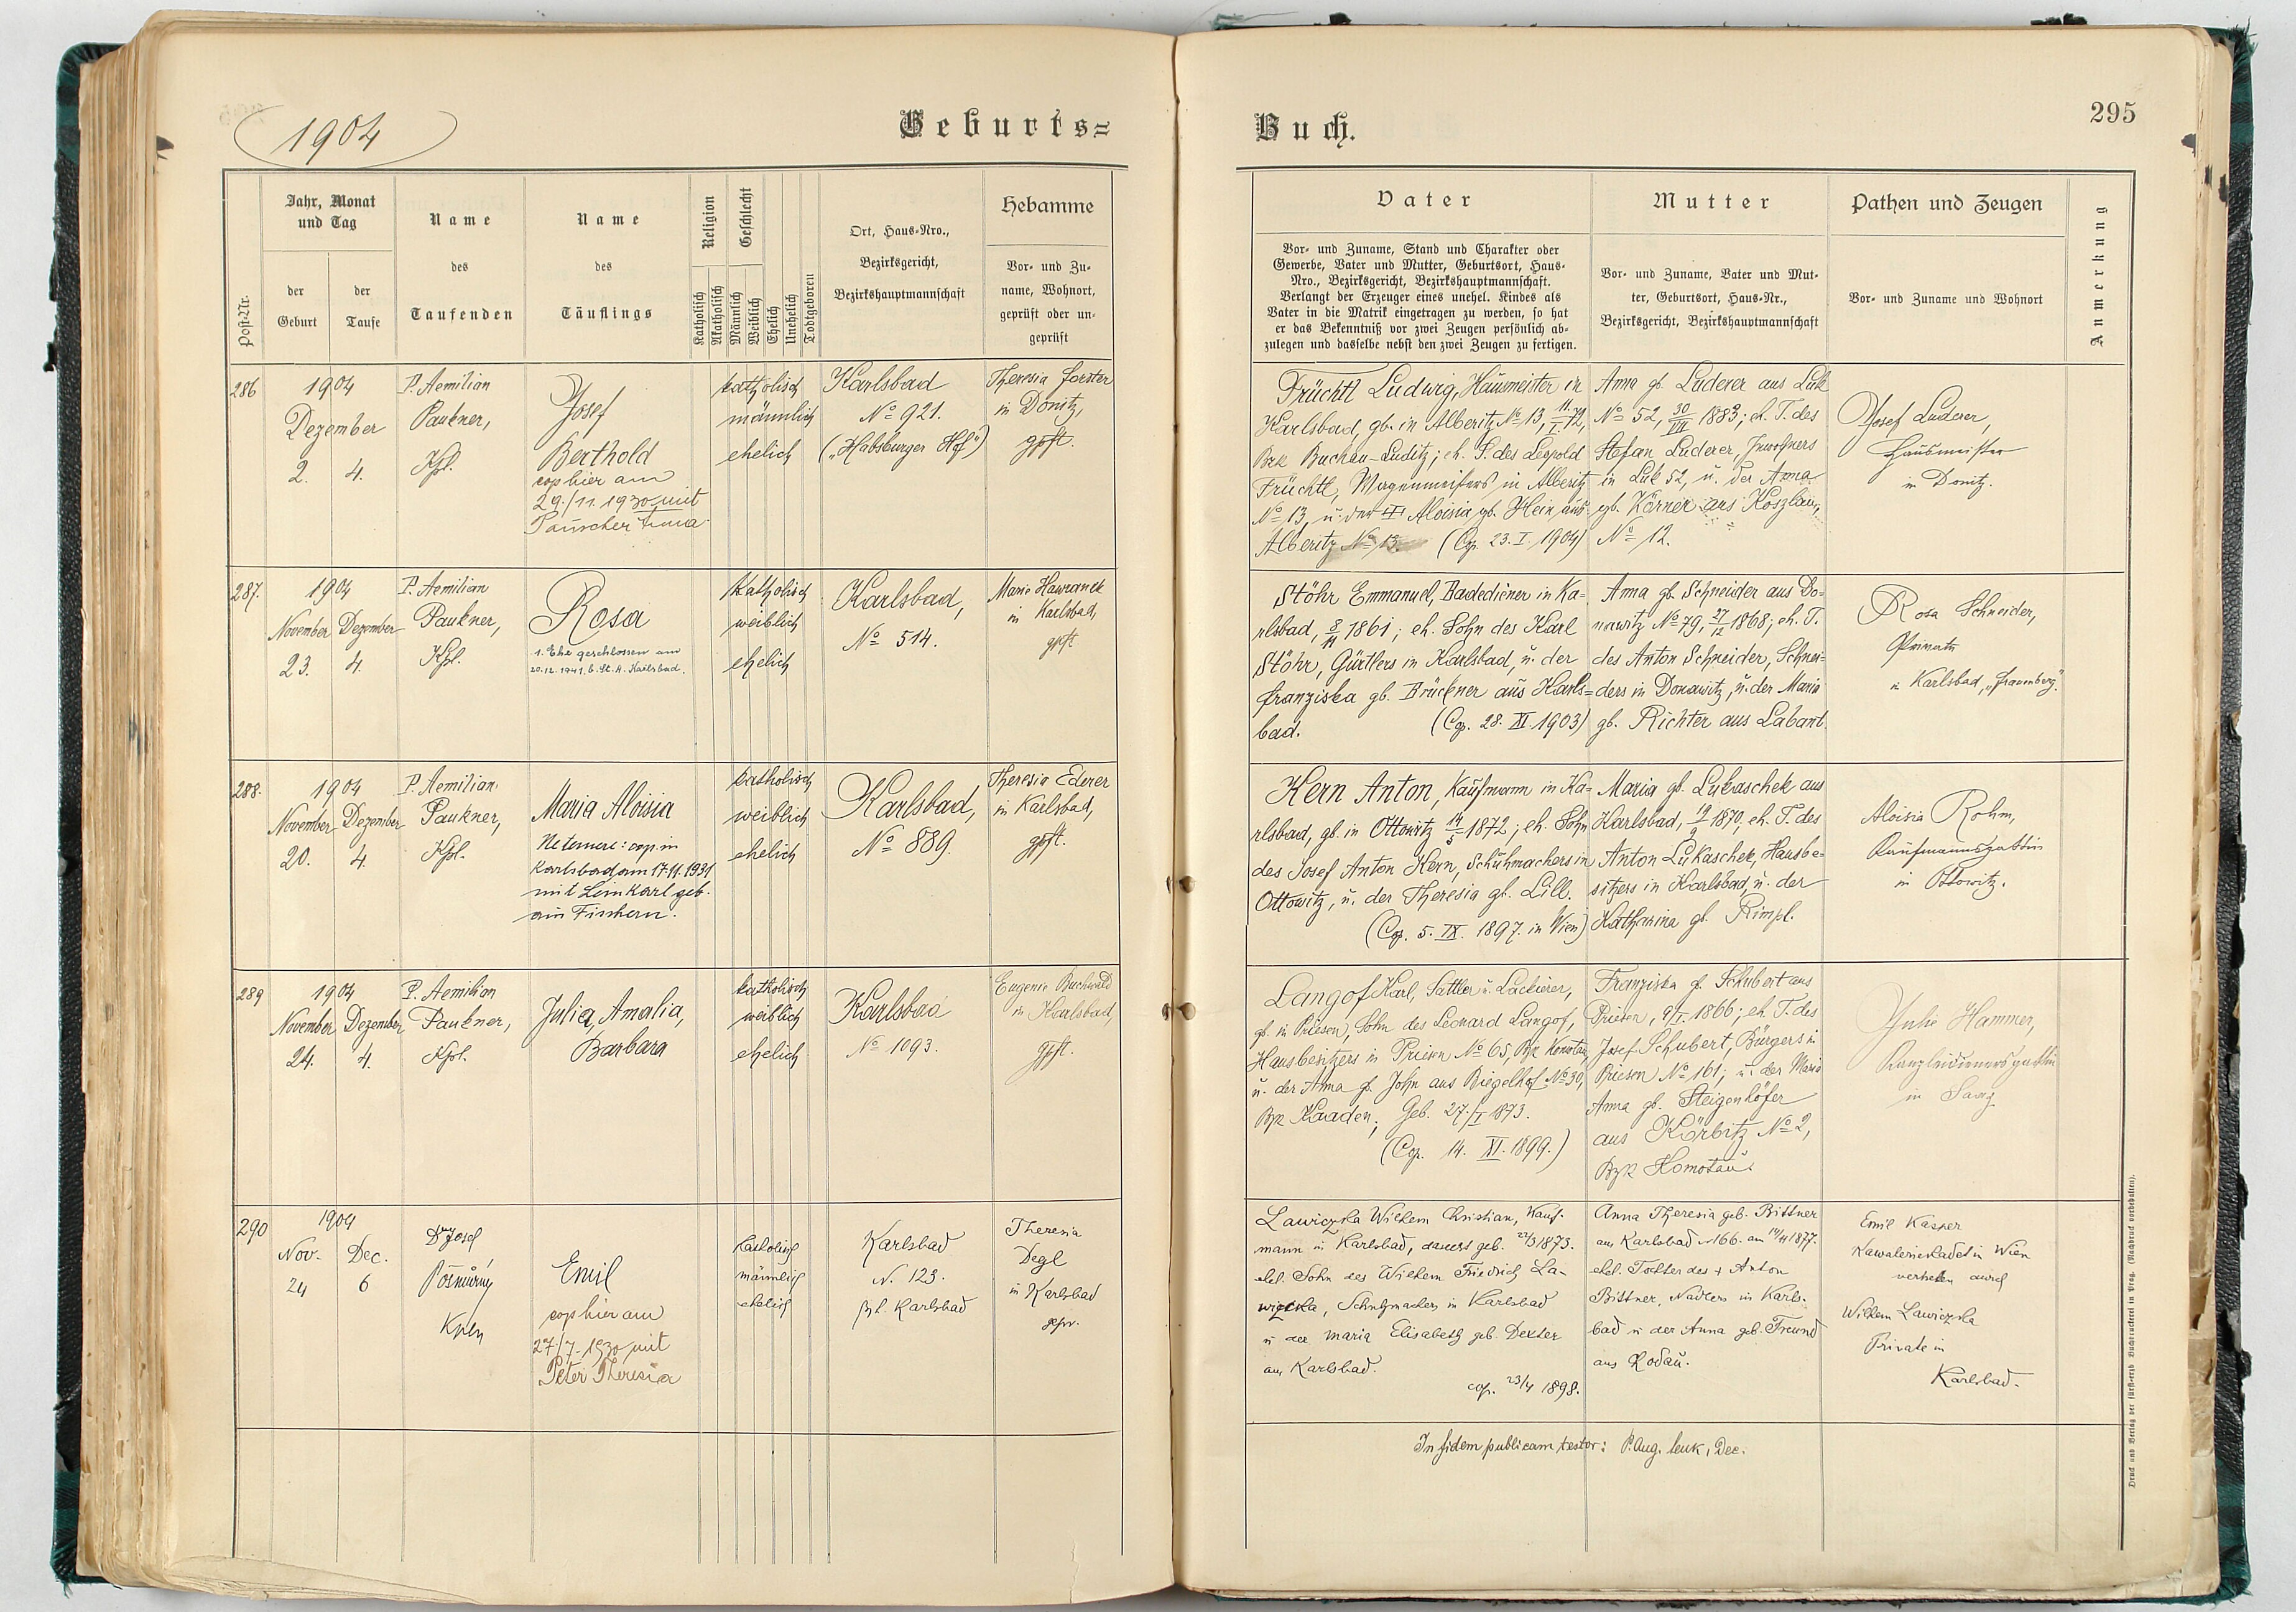 1904
Geburts=
Buch.
295
Post-Nr.
Jahr, Monat
und Tag
der
Geburt
der
Taufe
Name
des
Taufenden
Name
des
Täuflings
Religion
Katholisch
Akatholisch
Geschlecht
Männlich
Weiblich
Ehelich
Unehelich
Todtgeboren
Ort, Haus-Nro.,
Bezirksgericht,
Bezirkshauptmannschaft
Hebamme
Vor- und Zu-
name, Wohnort,
geprüft oder un-
geprüft
Vater
Vor- und Zuname, Stand und Charakter oder
Gewerbe, Vater und Mutter, Geburtsort, Haus-
Nro., Bezirksgericht, Bezirkshauptmannschaft.
Verlangt der Erzeuger eines unehel. Kindes als
Vater in die Matrik eingetragen zu werden, so hat
er das Bekenntniß vor zwei Zeugen persönlich ab-
zulegen und dasselbe nebst den zwei Zeugen zu fertigen.
Mutter
Vor- und Zuname, Vater und Mut-
ter, Geburtsort, Haus-Nr.,
Bezirksgericht, Bezirkshauptmannschaft
Pathen und Zeugen
Vor- und Zuname und Wohnort
Anmerkung
286
1904
Dezember
2. 4.
P. Aemilian
Paukner,
Kpl.
Josef
Berthold
cop hier am
29./11. 1930 mit
Pauscher Anna
katholisch
männlich
ehelich
Karlsbad
No 921.
("Habsburger Hof")
Theresia Forster
in Donitz,
gpft.
Früchtl Ludwig, Hausmeister in
Karlsbad, gb. in Alberitz No 13, 11./I. 72,
Bzk Buchau-Luditz; eh. S. des Leopold
Früchtl, Wagenmeisters in Alberitz
No 13, u. der Aloisia gb. Hein aus
Alberitz No 13. (Cop. 23. I. 1904)
Anna gb. Luderer aus Luk
No 52, 30/VII 1883; eh. T. des
Stefan Luderer, Inwohners
in Luk 52, u. der Anna
gb. Körner aus Koszlau,
No 12.
Josef Luderer,
Hausmeister
in Donitz.
287.
1904
November Dezember
23. 4.
P. Aemilian
Paukner,
Kpl.
Rosa
1. Ehe geschlossen am
20.12.1941. b. St. A. Karlsbad.
katholisch
weiblich
ehelich
Karlsbad,
No 514.
Marie Hawranek
in Karlsbad,
gpft
Stöhr Emmanuel, Badediener in Ka-
rlsbad, 8/11 1861; eh. Sohn des Karl
Stöhr, Gürtlers in Karlsbad, u. der
Franziska gb. Brückner aus Karls-
bad. (Cop. 28. XI. 1903)
Anna gb. Schneider aus Do-
nawitz No 79, 27/12 1868; eh. T.
des Anton Schneider, Schnei-
ders in Donawitz, u. der Maria
gb. Richter aus Labant.
Rosa Schneider,
Private
in Karlsbad,
288.
1904
November Dezember
20. 4
P. Aemilian
Paukner,
Kpl.
Maria Aloisia
Ne temere: cop. in
Karlsbad am 17.11.1931
mit Leim Karl geb.
aus Fischern.
katholisch
weiblich
ehelich
Karlsbad,
No 889.
Theresia Ederer
in Karlsbad,
gpft.
Kern Anton, Kaufmann in Ka-
rlsbad, gb. in Ottowitz 14/5 1872; eh. Sohn
des Josef Anton Kern, Schuhmachers in
Ottowitz, u. der Theresia gb. Lill.
(Cop. 5. IX. 1897. in Wien)
Maria gb. Lukaschek aus
Karlsbad, 19/9 1870, eh. T. des
Anton Lukaschek, Hausbe-
sitzers in Karlsbad, u. der
Katharina gb. Rimpl.
Aloisia Rohm,
Kaufmannsgattin
in Ottowitz.
289
1904
November Dezember
24. 4.
P. Aemilian
Paukner,
Kpl.
Julia, Amalia,
Barbara
katholisch
weiblich
ehelich
Karlsbad
No 1093.
Eugenie Buchwald
in Karlsbad,
gpft.
Langof Karl, Sattler u. Lackierer,
gb. in Priesen, Sohn des Leonard Langof,
Hausbesitzers in Priesen No 65, Bzk Komotau,
u. der Anna gb. John aus Riegelhof No 30,
Bzk Kaaden; Geb. 27./I 1873.
(Cop. 14. XI. 1899.)
Franziska gb. Schubert aus
Priesen, 9/I. 1866; eh. T. des
Josef Schubert, Bürgers in
Priesen No 161; u. der Maria
Anna gb. Steigenhöfer
aus Körbitz No 2,
Bzk Komotau.
Julie Hammer,
Kanzleidienersgattin
in Saaz
290
1904
Nov. Dec.
24 6
Dr Josef
Pošmúrný
Kpln
Emil
cop hier am
27/7. 1930 mit
Peter Theresia
katholisch
männlich
ehelich
Karlsbad
N. 123.
Bzl. Karlsbad
Theresia
Degl
in Karlsbad
gepr.
Lawiczka Wilhem Christian, Kauf-
mann in Karlsbad, daselbs geb. 22/3 1873.
ehel. Sohn des Wilhem Friedrich La-
wiczka, Schuhmachers in Karlsbad
u der Maria Elisabeth geb. Dexter
aus Karlsbad.
cop. 23/4 1898.
Anna Theresia geb. Bittner
aus Karlsbad N 166. am 14/4 1877.
ehel. Tochter des + Anton
Bittner, Nadlers in Karls-
bad u der Anna geb. Freund
aus Rodau.
Emil Kasper
Kavaleriekadet in Wien
vertreten durch
Wilhem Lawiczka
Private in
Karlsbad.
In fidem publicam testor: P. Aug. Denk, Dec.
Druck und Verlag der fürsterzb. Buchdruckerei in Prag. (Nachdruck vorbehalten).